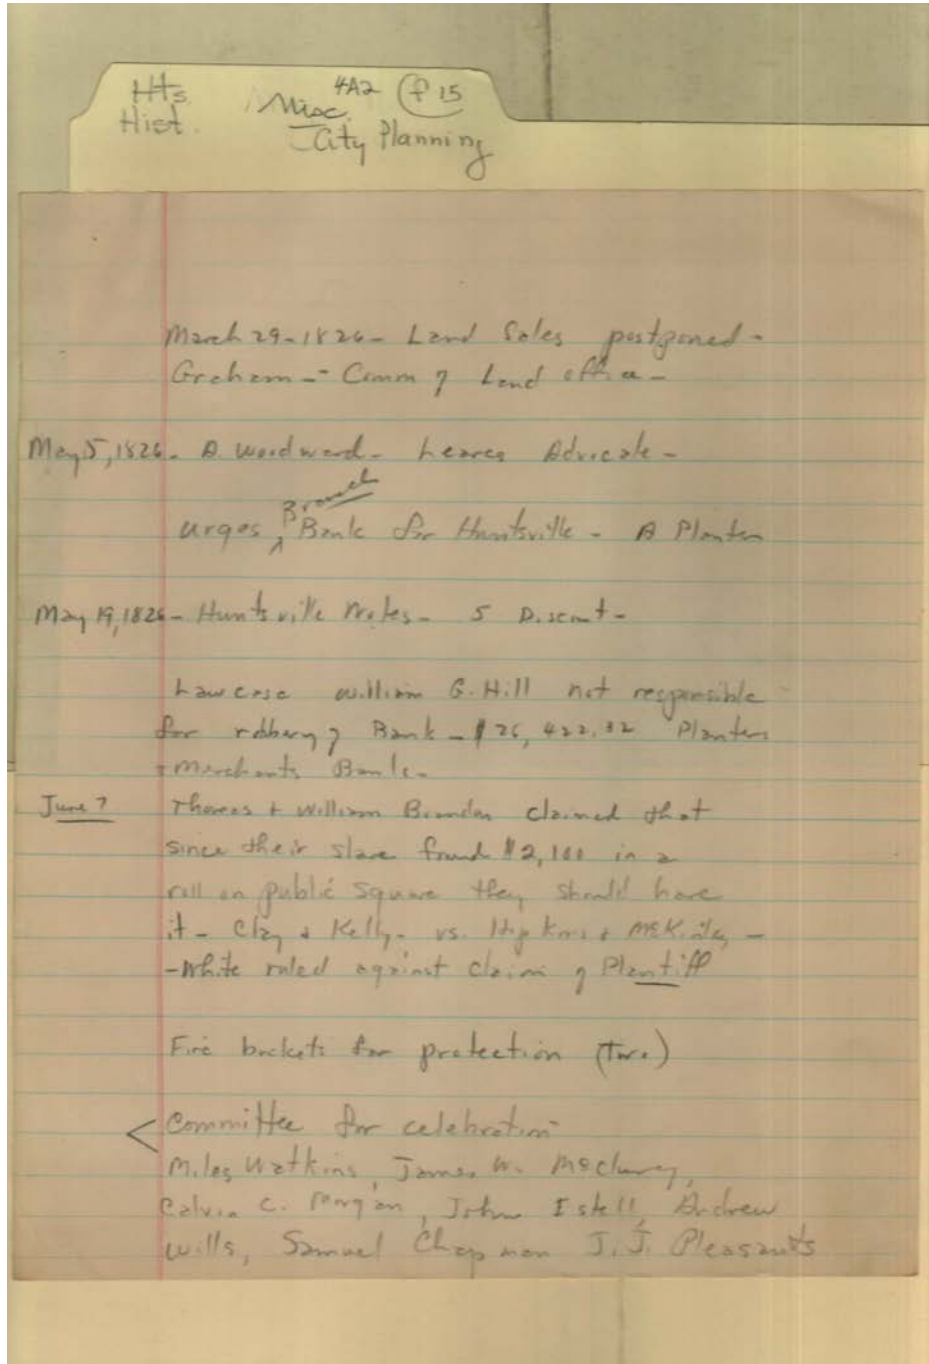 Hts. Hist.
Misc. 4A2 f 15
City Planning
March 29-1826- Land Sales postponed -
Graham -- Comm of Land office -
May 5, 1826- A Woodward- Leaves Advocate -
Branch
Urges ^ Bank for Huntsville - A Planter
May 19, 1826- Huntsville Notes- 5 Discount -
Law case William G. Hill not responsible
for robbery of Bank - $26, 422.32 Planters
+ Merchants Bank-
June 7 Thomas + William Brandon claimed that
since their slave found $2,100 in a
roll on public square they should have
it - Clay + Kelly- vs. Hopkins + McKinley -
-White ruled against claim of Plantiff
Fire buckets for protection (Two)
< Committee for celebration
Miles Watkins, James W. McClung,
Calvin C. Morgan, John Estell, Andrew
Wills, Samuel Chapman J. J. Pleasants